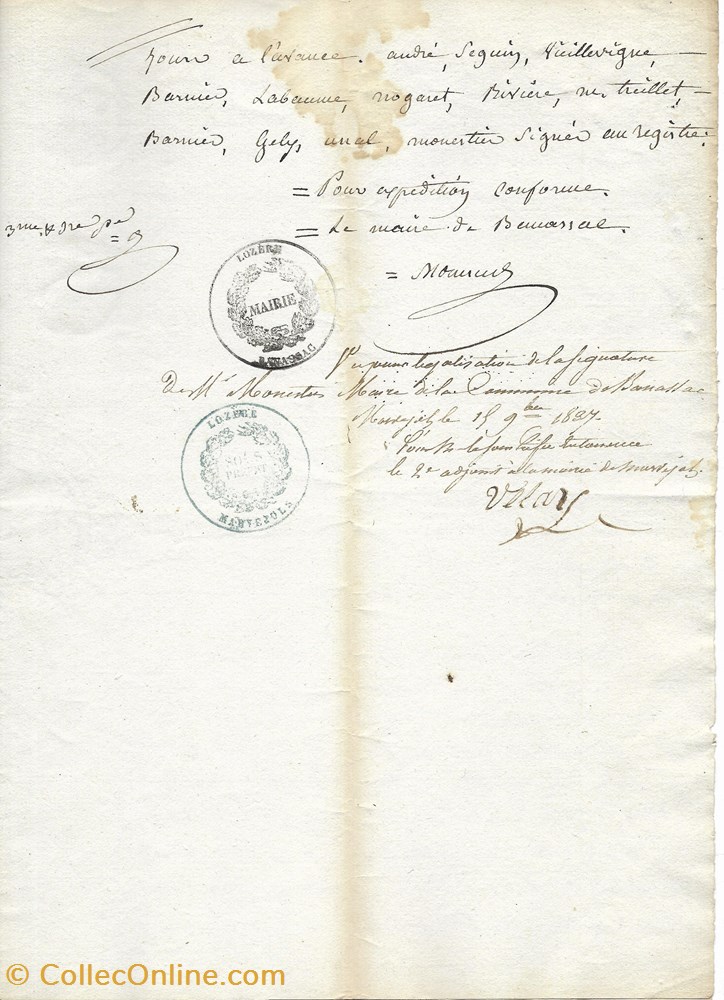 jours a l'avance. andré, Seguin, Vieillevigne, –
Barnier, Labaume, nogaret, Rivière, treillet, –
Barnier, Gely, unal, monestier Signés au registre.
= Pour expédition Conforme.
= Le maire de Banassac.
= Monestier
LOZÈRE
MAIRIE
BANASSAC
Vu pour legalisation de la Signature
De Mr Monestier Maire de la Commune de Banassac
Marvejols le 15 9bre 1847
le 2e adjoint à la mairie de Marvejols
LOZÈRE
SOUS
PREFET
MARVEJOLS
Velay
© CollecOnline.com